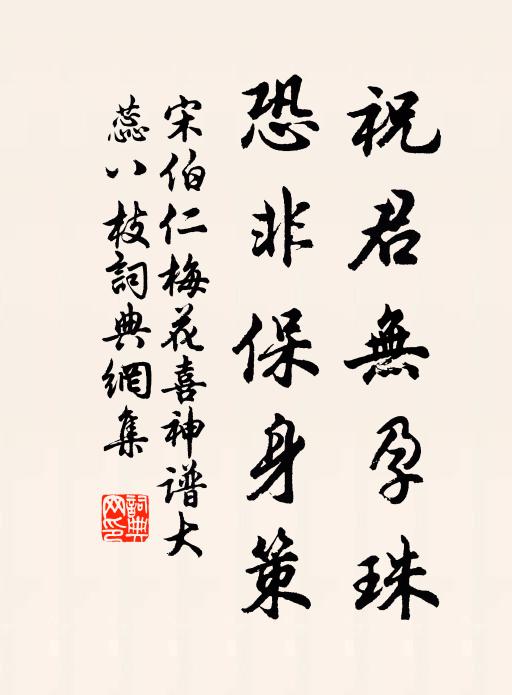 祝君無孕珠
恐非保身策
宋伯仁梅花喜神譜大
蕊八枝詞典網集
詞典網印